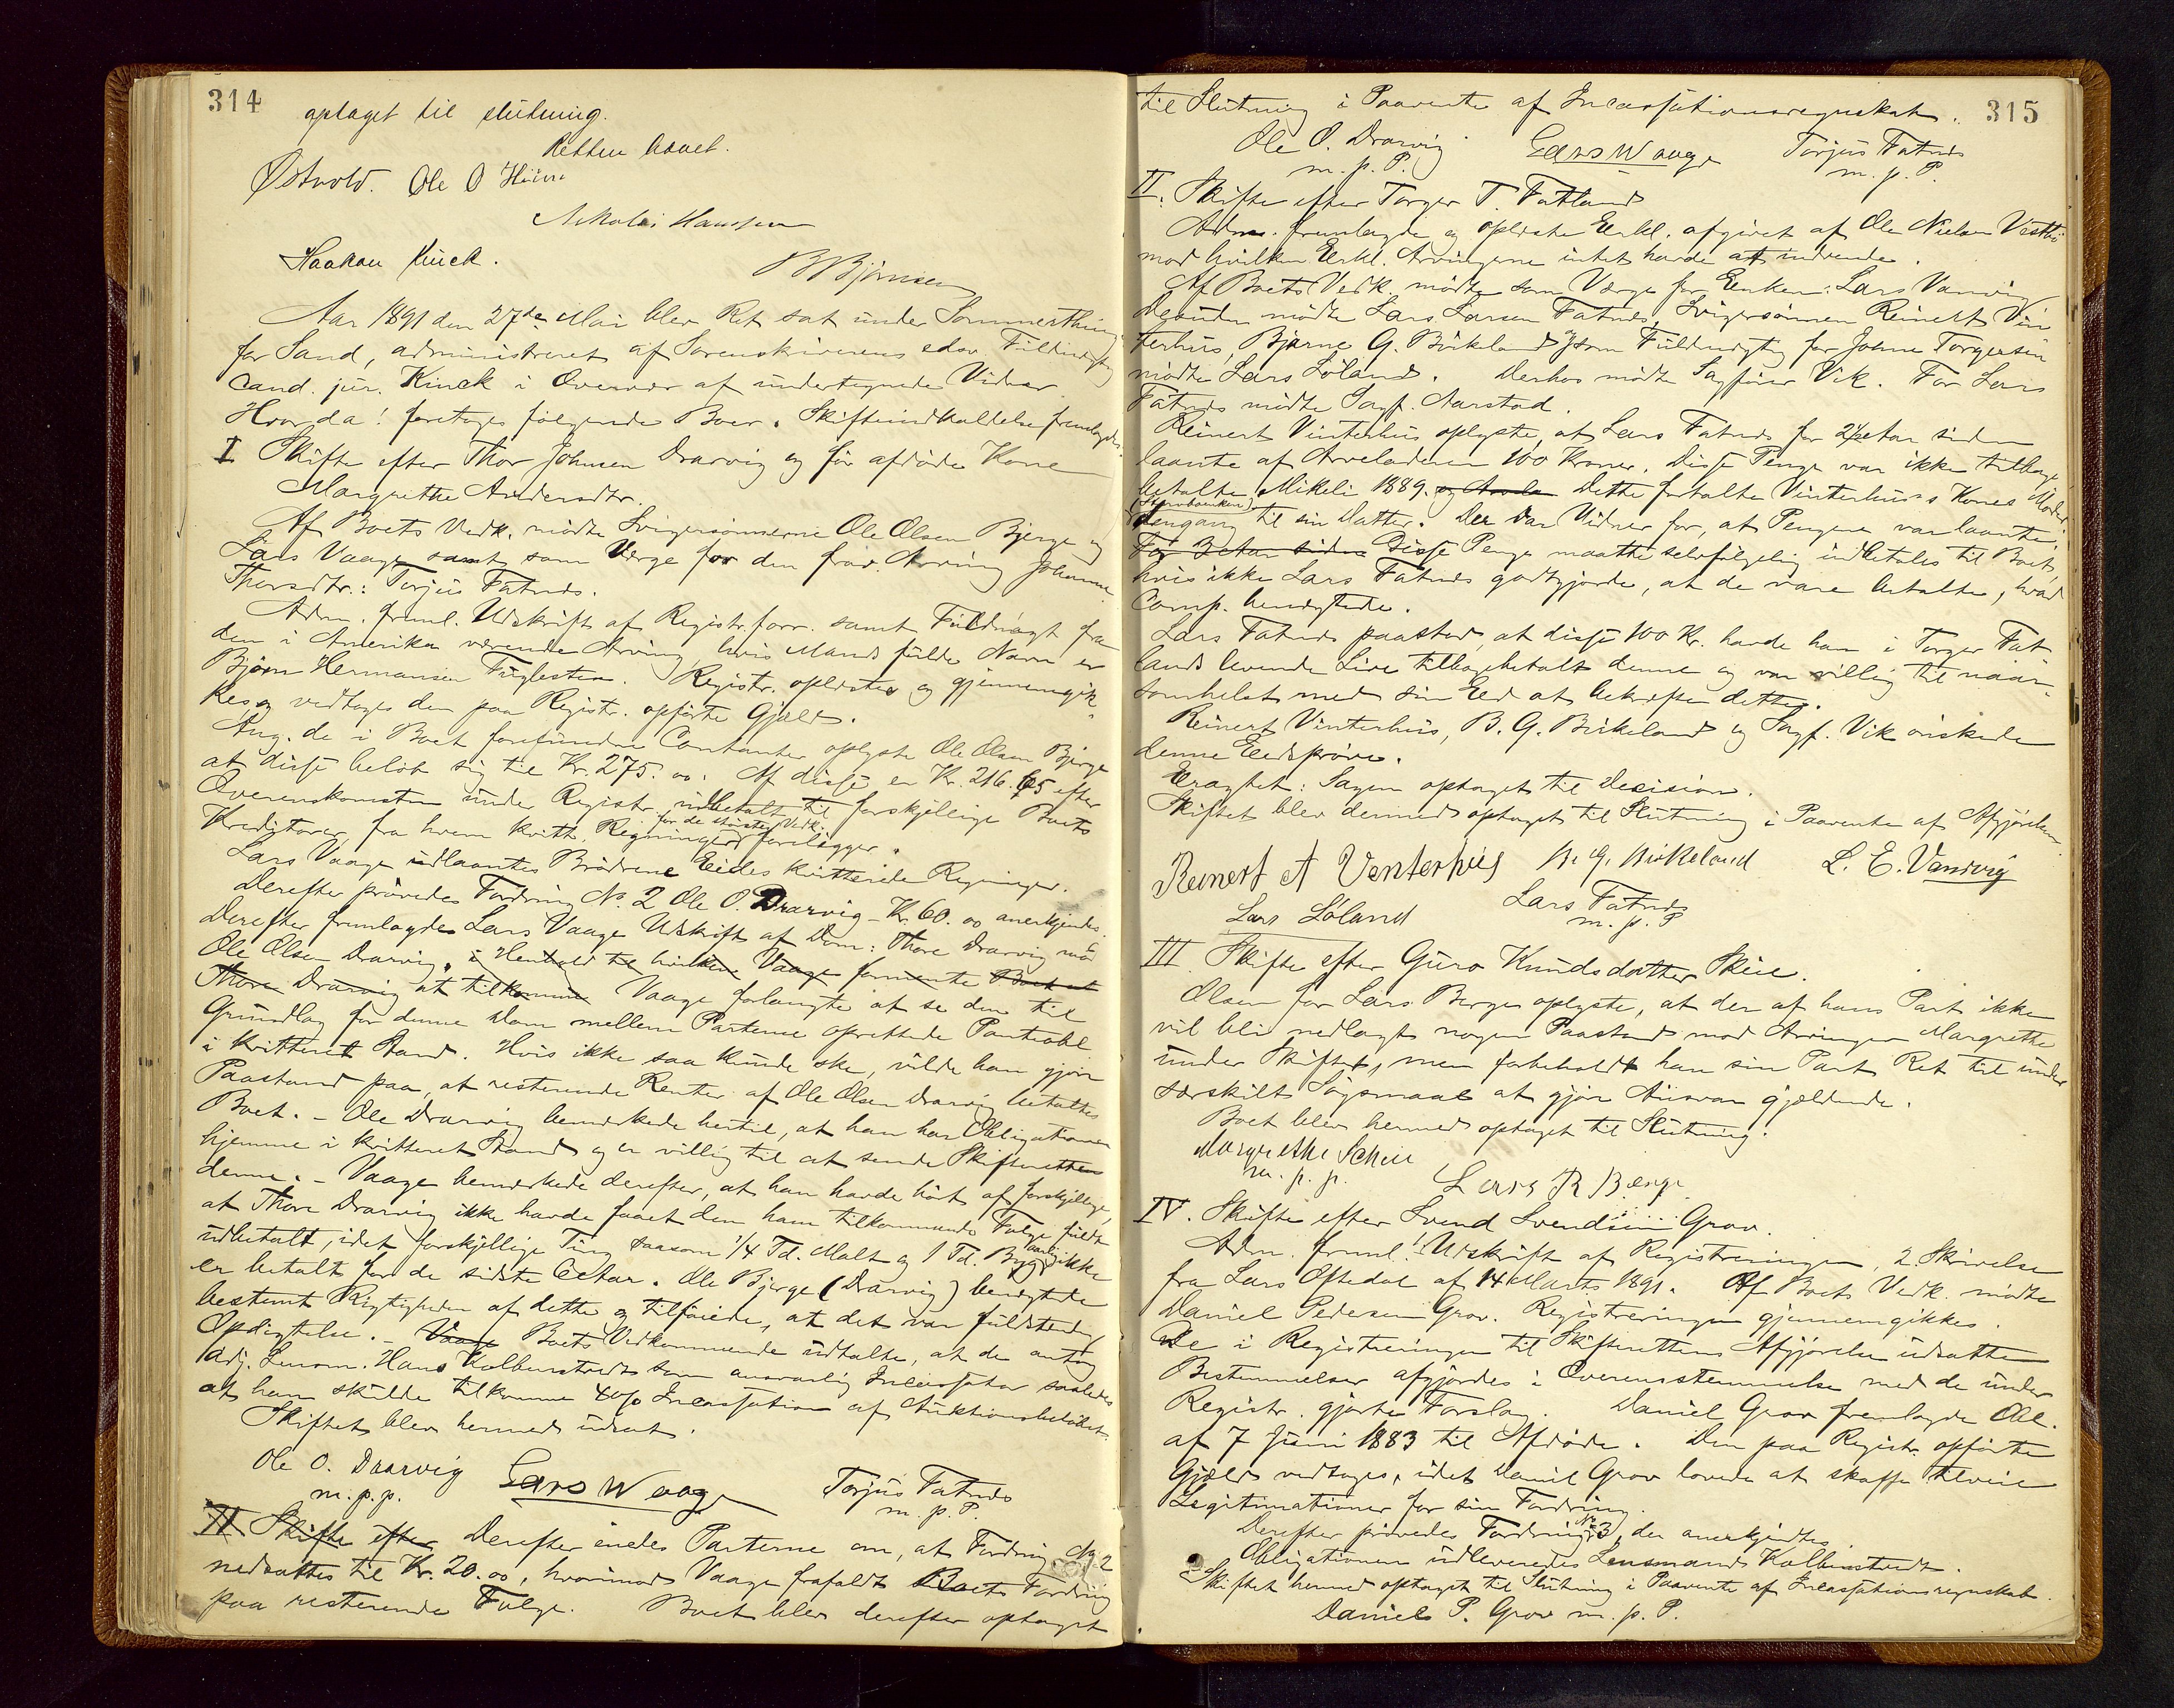 314
optaget til slutning.
Retten hævet.
Østvold. Ole O Hiim
Nikolai Hanssen
Haakon Kinck.
B Bjørnsen
Aar 1891 den 27de Mai blev Ret sat under Sommerthing
for Sand, administreret af Sorenskriverens edsv. Fuldmægtig
Cand. jur. Kinck i Overvær af undertegnede Vidner.
Hvor da! foretoges følgende Boer. Skifteindkaldelse fremlagdes.
I Skifte efter Thor Johnsen Drarvig og før afdøde Kone
Margrethe Andersdtr.
Af Boets Vedk. mødte Svigersønnerne Ole Olsen Bjerge og
Lars Vaage samt som Verge for den frav. Arving Johanne
Thorsdtr.: Torjus Fatnes.
Adm. freml. Udskrift af Registr.forr. samt Fuldmagt fra
den i Amerika værende Arving, hvis Mands fulde Navn er
Bjørn Hermansen Fuglesten. Registr. oplæstes og gjennemgik
kes og vedtoges den paa Registr. opførte Gjæld.
Ang. de i Boet forefundne Contanter oplyste Ole Olsen Bjerge
at disse beløb sig til Kr. 275.00. Af disse er Kr. 216.65 efter
Overenskomsten under Registr. udbetalt til forskjellige Boets
Kreditorer, fra hvem kvitt. Regninger for de største Vedk. foreligger.
Lars Vaage udlaantes Brødrene Eides kvitterede Regninger.
Derefter prøvedes Fordring No. 2 Ole O. Drarvig – Kr 60.00 anerkjendes.
Derefter fremlagdes Lars Vaage Udskrift af Dom: Thore Drarvig mod
Ole Olsen Drarvig, i Henhold til hvilken Vaage formente Boet at
Thore Drarvig at tilkomme Vaage forlangte at se den til
Grundlag for denne Dom mellem Parterne oprettede Panteobl.
i kvitteret Stand. Hvis ikke saa kunde ske, vilde han gjøre
Paastand paa, at resterende Renter af Ole Olsen Drarvig betaltes
Boet. – Ole Drarvig bemærkede hertil, at han har Obligationen
hjemme i kvitteret Stand og er villig til at sende Skifteretten
denne. – Vaage bemærkede derefter, at han havde hørt af forskjellige,
at Thore Drarvig ikke havde faaet den ham tilkommende Folge fuldt
udbetalt, idet forskjellige Ting saasom 1/4 Td. Malt og 1 Td. Byg aarlig ikke
er betalt for de sidste Aar. Ole Bjerge (Drarvig) benægtede
bestemt Rigtigheden af dette og tilføiede, at det var fuldstændig
Opdigtelse. – Vaage Boets Vedkommende udtalte, at de antog
Adj. Lensm. Hans Kolbenstvedt som ansvarlig Incassator saaledes
at han skulde tilkomme 4 0/0 Incassation af Auktionsbeløbet.
Skiftet blev hermed udsat.
Ole O. Draarvig Lars Waage Torjus Fatnes
m.p.p. m.p.P.
II Skifte efter Derefter enedes Parterne om, at Fordring No. 2
nedsattes til Kr. 20.00, hvorimod Vaage frafaldt Boets Fordring
paa resterende Folge. Boet blev derefter optaget
315
til Slutning i Paavente af Incassationsregnskab.
Ole O. Drarvig Lars Waage Torjus Fatnes
m.p.P. m.p.P.
II. Skifte efter Torger T. Fatland
Adm. fremlagde og oplæste Erkl. afgivet af Ole Nielsen Vestbø
mod hvilken Erkl. Arvingerne intet havde at indvende.
Af Boets Vedk. mødte som Verge for Enken: Lars Vanvig
Desuden mødte Lars Larsen Fatnes, Svigersønnen Reinert Vin
terhus, Bjarne G. Birkeland og som Fuldmægtig for Johne Torgersen
mødte Lars Løland. Derhos mødte Sagfører Vik. For Lars
Fatnes mødte Sagf. Aarstad.
Reinert Vinterhus oplyste, at Lars Fatnes for 2 1/2 Aar siden
laante af Arveladeren 100 Kroner. Disse Penge var ikke tilbage
betalte Mikeli 1889. Dette fortalte Vinterhus's Kones Moder
(Stervboenken)
dengang til sin Datter. Der var Vidner for, at Pengene var laante.
For 2 Aar siden Disse Penge maatte selvfølgelig indbetales til Boet,
hvis ikke Lars Fatnes godtgjorde, at de vare betalte, hvad
Comp. benægtede.
Lars Fatnes paastod, at disse 100 Kr. havde han i Torger Fat
lands levende Live tilbagebetalt denne og var villig til naar-
somhelst med sin Eed at bekræfte dette.
Reinert Vinterhus, B. G. Birkeland og Sagf. Vik ønskede
denne Eedsprøve.
Eragtet: Sagen optoges til Decision.
Skiftet blev dermed optaget til Slutning i Paavente af Afgjørelsen.
Reinert A Venterhus B. G. Birkeland L. E. Vandvig
Lars Løland Lars Fatnes
m.p.P
III Skifte efter Guro Knudsdatter Skeie.
Olsen for Lars Berge oplyste, at der af hans Part ikke
vil bli nedlagt nogen Paastand mod Arvingen Margrethe
under Skiftet, men forbeholdt han sin Part Ret til under
særskilt Søgsmaal at gjøre Ansvar gjældende.
Boet blev hermed optaget til Slutning.
Margrethe Scheie
m.p.p. Lars R Berge
IV. Skifte efter Svend Svendsen Grov.
Adm. freml. 1. Udskrift af Registreringen, 2. Skrivelse
fra Lars Oftedal af 14 Marts 1891. Af Boets Vedk. mødte
Daniel Pedersen Grov. Registreringen gjennemgikkes.
De i Registreringen til Skifterettens Afgjørelse udsatte
Bestemmelser afgjordes i Overensstemmelse med de under
Registr. gjorte Forslag. Daniel Grov fremlagde Obl.
af 7 Juni 1883 til Afdøde. Den paa Registr. opførte
Gjæld vedtoges, idet Daniel Grov lovede at skaffe tilveie
Legitimationer for sin Fordring.
Derefter prøvedes Fordring No. 3, der anerkjendtes.
Obligationen udleveredes Lensmand Kolbenstvedt.
Skiftet hermed optaget til Slutning i Paavente af Incassationsregnskab.
Daniel P. Grov m.p.P.